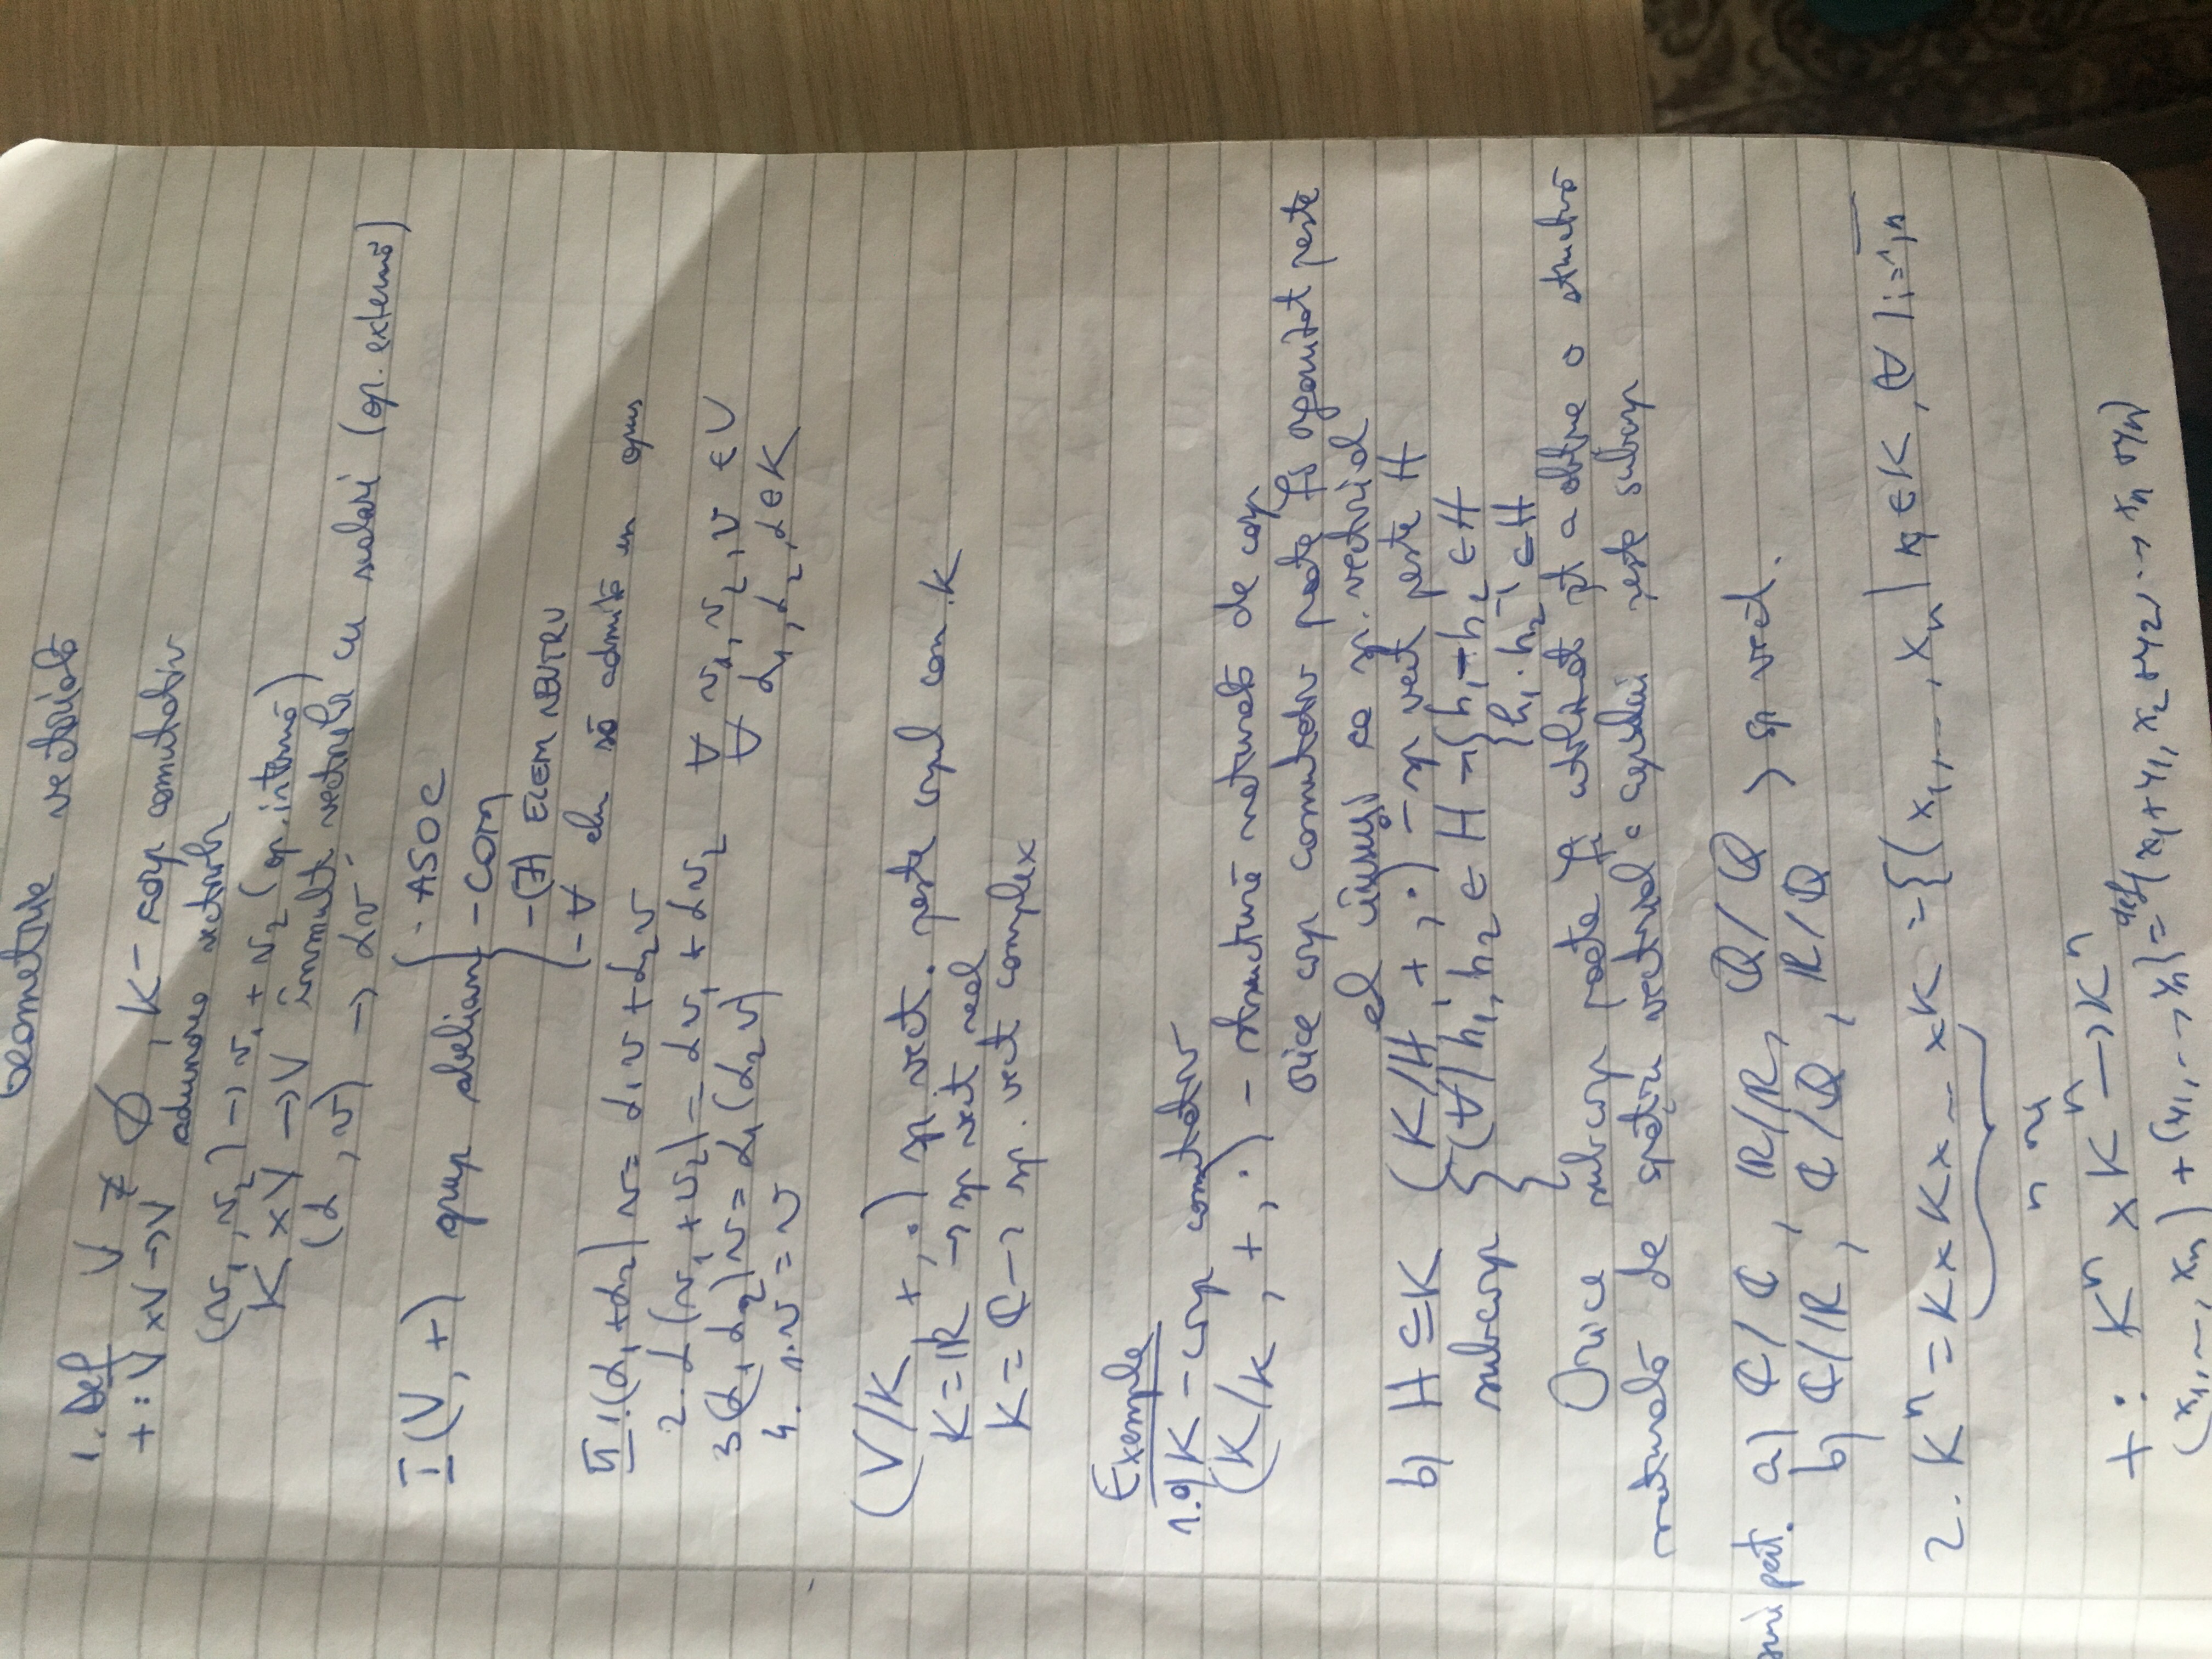 Geometrie vectorială
1. Def V ≠ ∅, K - corp comutativ
+ : V×V→V adunarea vectorilor
(v₁, v₂) → v₁ + v₂ (op. internă)
K × V → V înmulț. vectorilor cu scalari (op. externă)
(α, v) → αv
I (V, +) grup abelian { - ASOC
- COM
- (∃) ELEM NEUTRU
- ∀ elm să admită un opus
II. 1. (α₁+α₂) v = α₁v + α₂v
2. α(v₁ + v₂) = αv₁ + αv₂ ∀ v₁, v₂, v ∈ V
3 (α₁ α₂) v = α₁(α₂ v) ∀ α₁, α₂, α ∈ K
4. 1·v = v
(V/K, +, ·) sp. vect. peste corpul com. K
K = ℝ → sp vect real
K = ℂ → sp. vect complex
Exemple
1. a) K - corp comutativ
(K/K, +, ·) - structură naturală de corp
orice corp comutativ poate fi organizat peste
el însuși ca sp. vectorial
b) H ⊆ K (K/H, +, ·) - sp vect peste H
subcorp { (∀) h₁, h₂ ∈ H → { h₁ - h₂ ∈ H
h₁ · h₂⁻¹ ∈ H
Orice subcorp poate fi utilizat pt a obține o structură
naturală de spațiu vectorial a corpului peste subcorp
part. a) ℂ/ℂ, ℝ/ℝ, ℚ/ℚ > sp vect.
b) ℂ/ℝ, ℂ/ℚ, ℝ/ℚ
2. Kⁿ = K×K×...×K = {(x₁, ..., xₙ | xᵢ ∈ K, (∀) i = 1,n
n ori
+ : Kⁿ × Kⁿ → Kⁿ
(x₁, ..., xₙ) + (y₁, ..., yₙ) =def (x₁+y₁, x₂+y₂, ..., xₙ+yₙ)